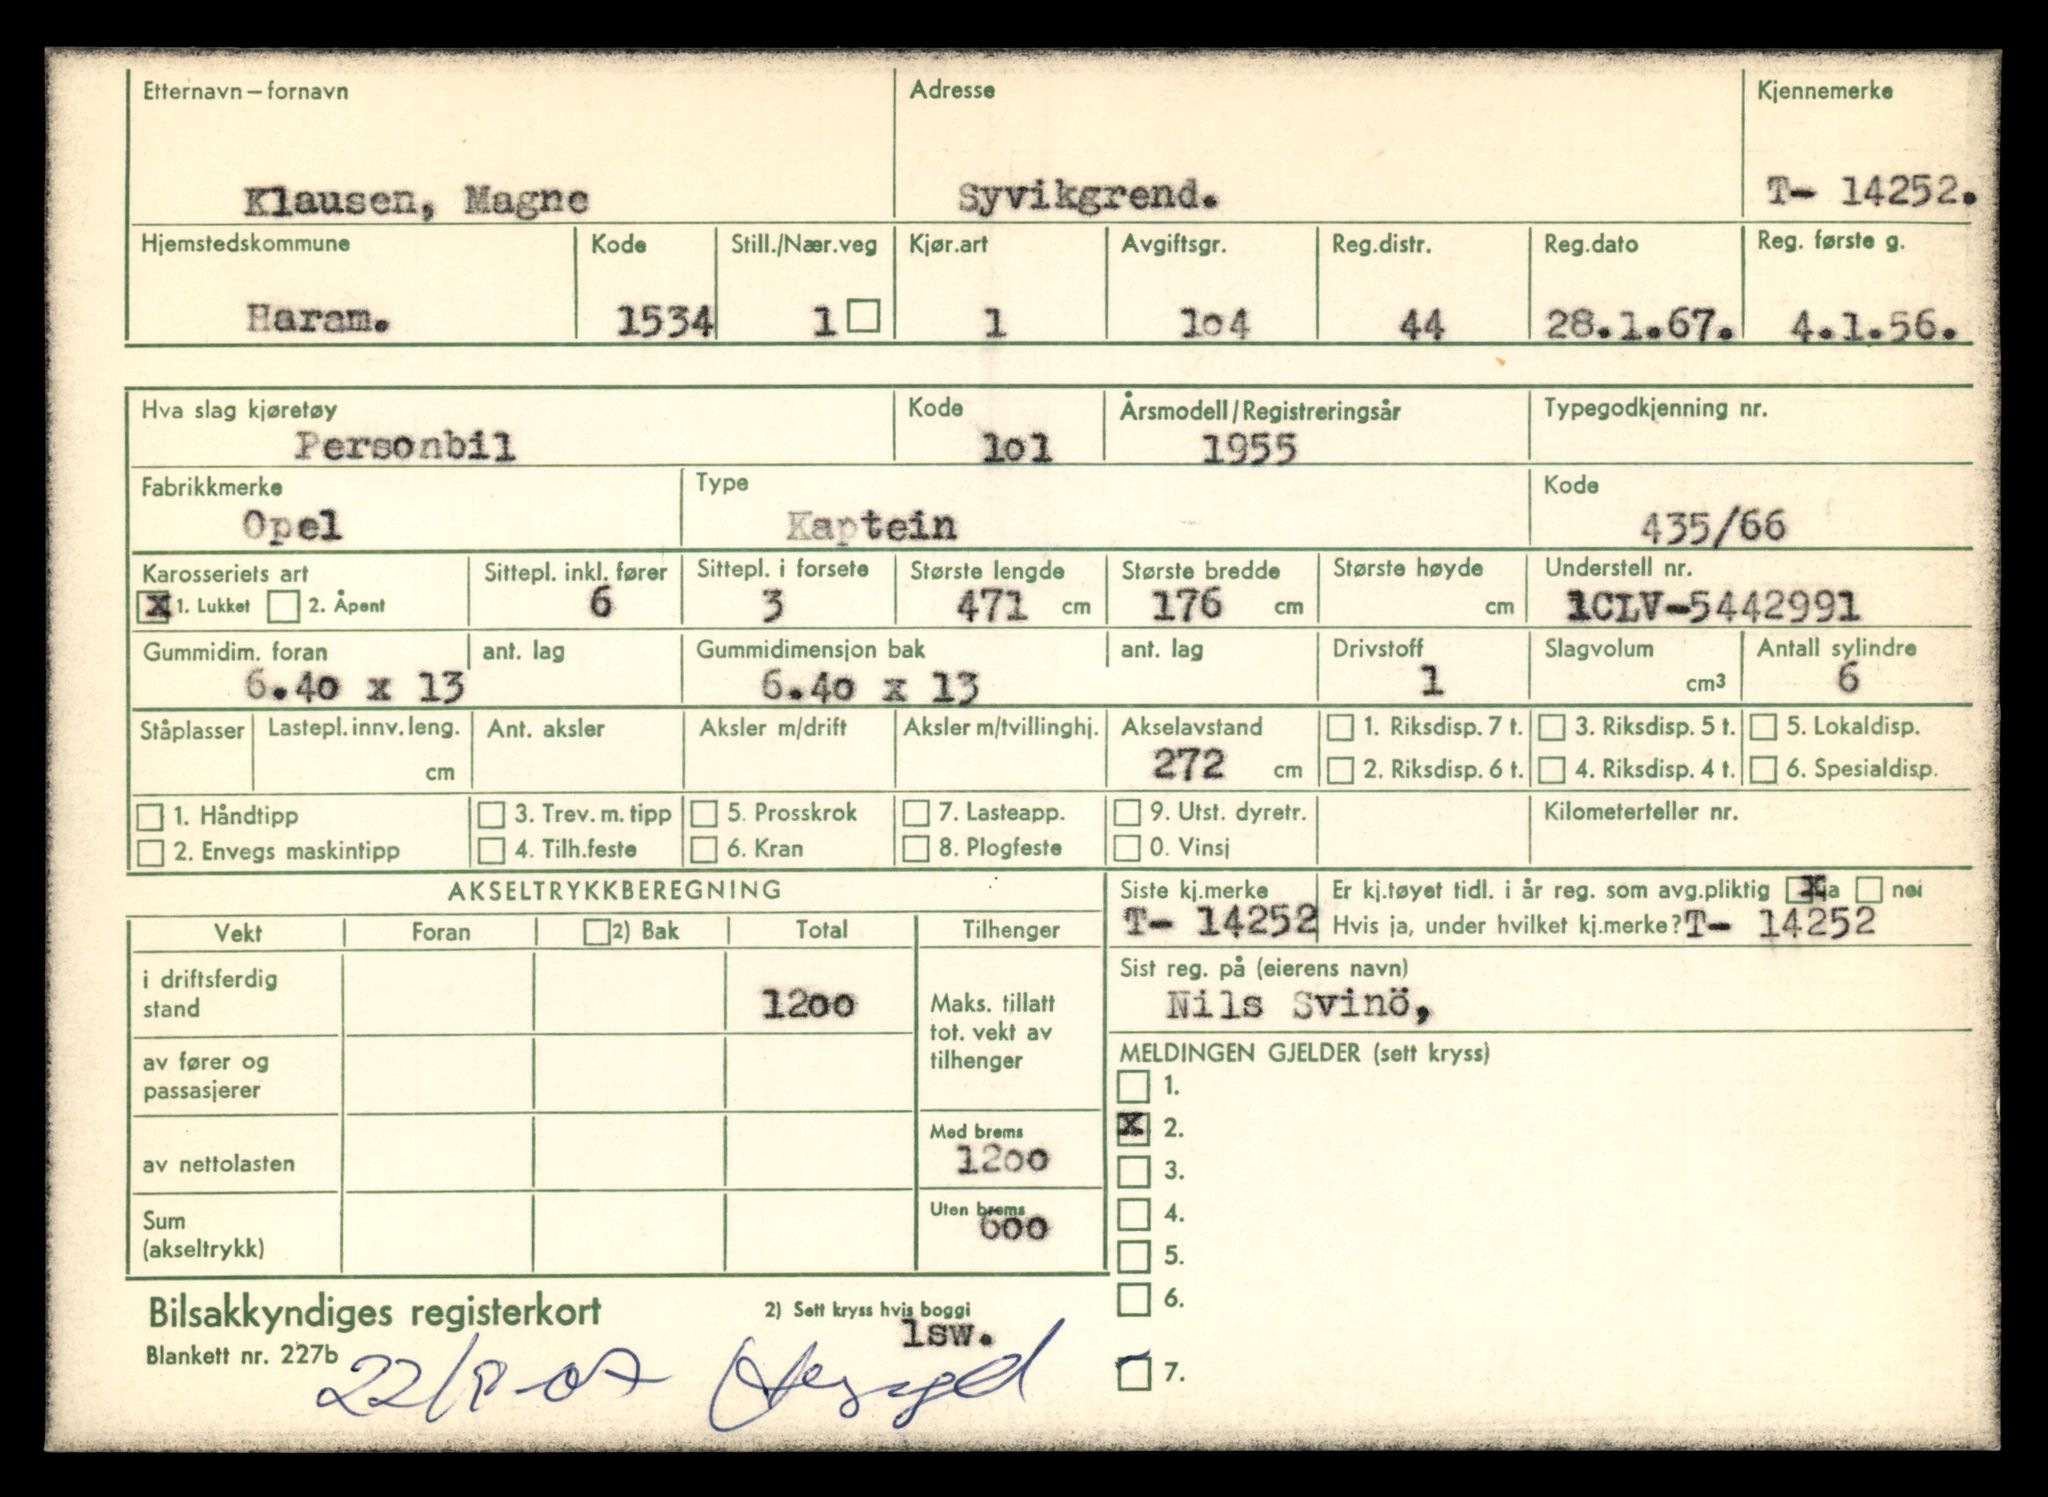 Etternavn – fornavn Adresse Kjennemerke
Klausen, Magne Syvikgrend. T- 14252.
Hjemstedskommune Kode Still./Nær.veg Kjør.art Avgiftsgr. Reg.distr. Reg.dato Reg. første g.
Haram. 1534 1 1 1o4 44 28.1.67. 4.1.56.
Hva slag kjøretøy Kode Årsmodell/Registreringsår Typegodkjenning nr.
Personbil 1o1 1955
Fabrikkmerke Type Kode
Opel Kaptein 435/66
Karosseriets art Sittepl. inkl. fører Sittepl. i forsete Største lengde Største bredde Største høyde Understell nr.
x 1. Lukket 2. Åpent 6 3 471 cm 176 cm cm 1CLV-5442991
Gummidim. foran ant. lag Gummidimensjon bak ant. lag Drivstoff Slagvolum Antall sylindre
6.4o x 13 6.4o x 13 1 cm3 6
Ståplasser Lastepl. innv. leng. Ant. aksler Aksler m/drift Aksler m/tvillinghj. Akselavstand 1. Riksdisp. 7 t. 3. Riksdisp. 5 t. 5. Lokaldisp.
cm 272 cm 2. Riksdisp. 6 t. 4. Riksdisp. 4 t. 6. Spesialdisp.
1. Håndtipp 3. Trev. m. tipp 5. Prosskrok 7. Lasteapp. 9. Utst. dyretr. Kilometerteller nr.
2. Envegs maskintipp 4. Tilh.feste 6. Kran 8. Plogfeste 0. Vinsj
AKSELTRYKKBEREGNING Siste kj.merke Er kj.tøyet tidl. i år reg. som avg.pliktig x ja nei
T- 14252 Hvis ja, under hvilket kj.merke? T- 14252
Vekt Foran 2) Bak Total Tilhenger
Sist reg. på (eierens navn)
Nils Svinö,
i driftsferdig stand 1200 Maks. tillatt tot. vekt av tilhenger
av fører og passasjerer
av nettolasten Med brems 12oo
Sum (akseltrykk) Uten brems 6oo
MELDINGEN GJELDER (sett kryss)
1.
x 2.
3.
4.
5.
6.
7.
Bilsakkyndiges registerkort 2) Sett kryss hvis boggi
lsw.
Blankett nr. 227b